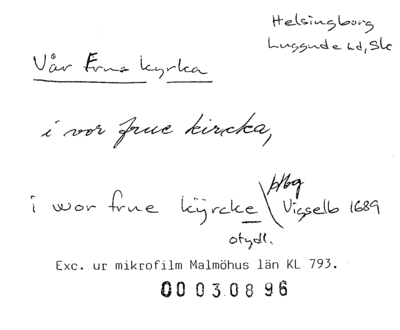 Helsingborg
Luggude hd, Sk
Vår Frus kyrka
i vor frue kircka,
i wor frue kÿrcke
hbg
Vigselb 1689
otydl.
Exc. ur mikrofilm Malmöhus län KL 793.
00 03.08 96